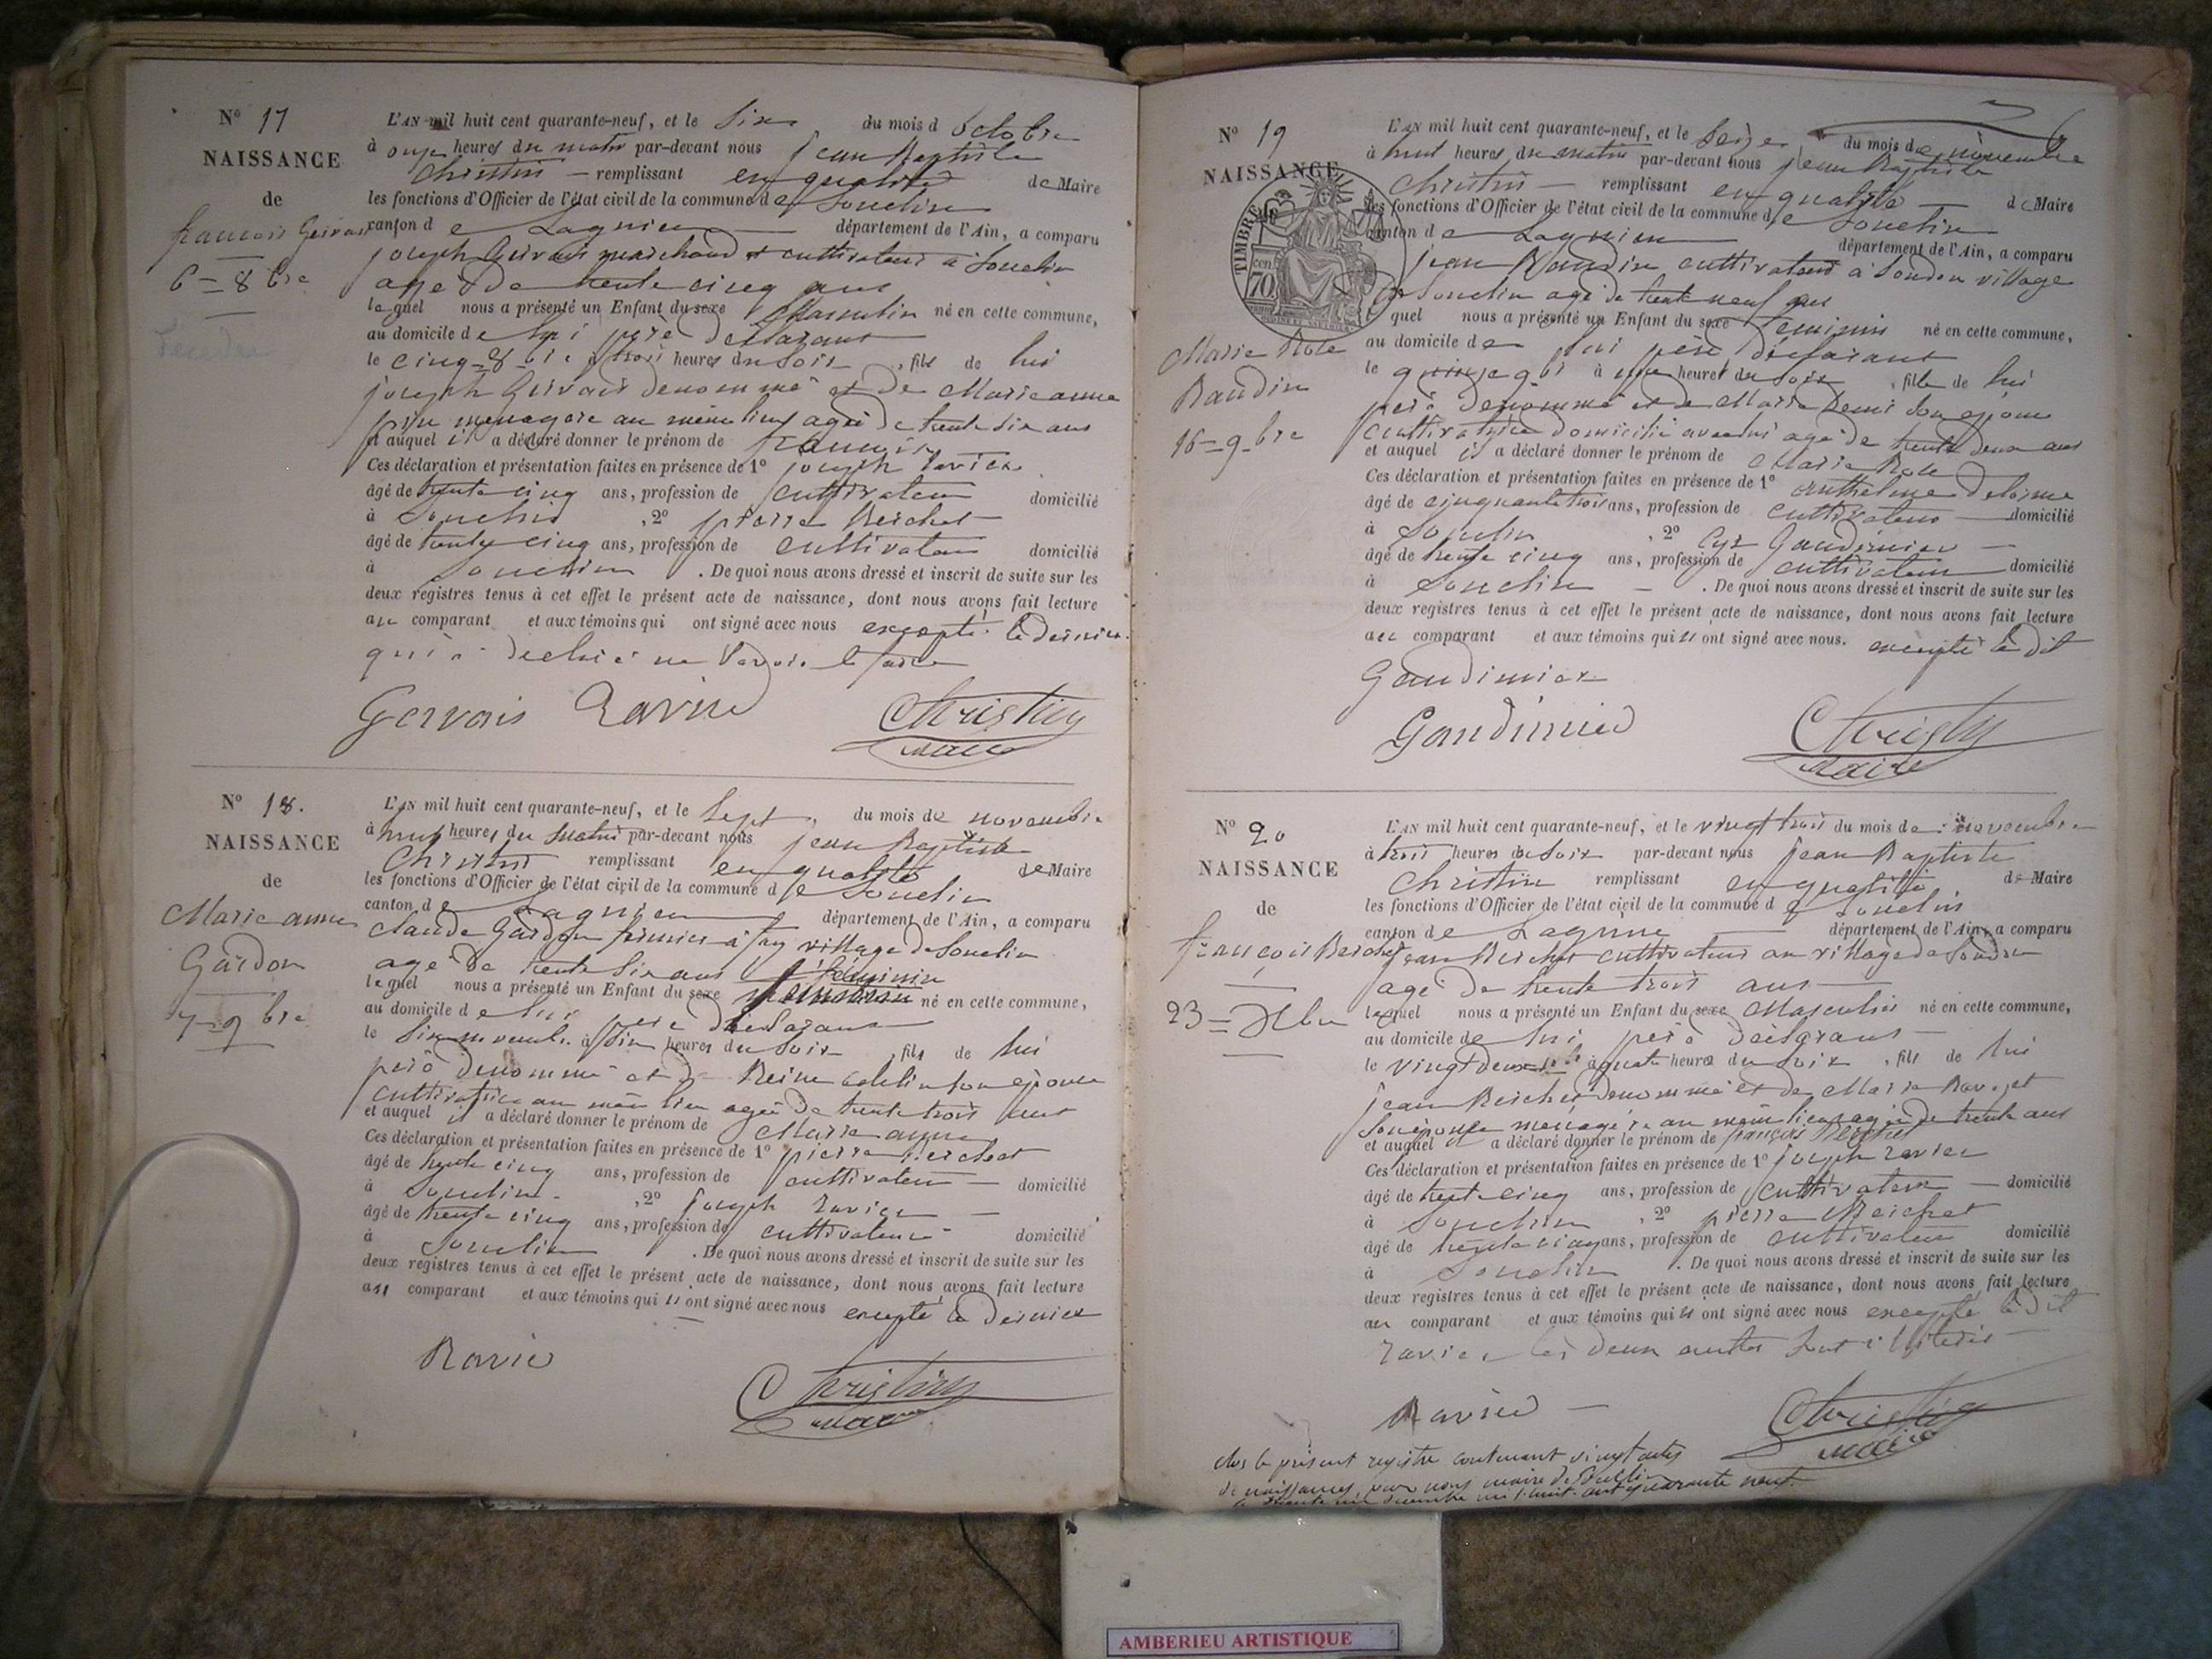 N° 17
NAISSANCE
de
francois Gervais
6 = 8bre
L'AN mil huit cent quarante-neuf, et le Six du mois d'octobre
à onze heures du matin par-devant nous jean Baptiste
Christin — remplissant en qualité de Maire
les fonctions d'Officier de l'état civil de la commune de Souclin
canton de Lagnieu département de l'Ain, a comparu
joseph Gervais marchand et cultivateur à Souclin
age de trente cinq ans
lequel nous a présenté un Enfant du sexe Masculin né en cette commune,
au domicile de lui père déclarant
le cinq 8bre à trois heures du Soir, fils de lui
joseph Gervais denommé et de Marie anne
menagere au même lieu agée de trente six ans
et auquel il a déclaré donner le prénom de francois
Ces déclaration et présentation faites en présence de 1° joseph Ravier
âgé de trente cinq ans, profession de cultivateur domicilié
à Souclin, 2° pierre Reichet
âgé de trente cinq ans, profession de cultivateur domicilié
à Souclin. De quoi nous avons dressé et inscrit de suite sur les
deux registres tenus à cet effet le présent acte de naissance, dont nous avons fait lecture
au comparant et aux témoins qui ont signé avec nous excepté le dernier
qui a declaré ne Savoir le faire
Gervais Ravier Christin
maire
N° 18.
NAISSANCE
de
Marie anne
Gardon
7 = 9bre
L'AN mil huit cent quarante-neuf, et le Sept du mois de novembre
à neuf heures du matin par-devant nous jean Baptiste
Christin remplissant en qualité de Maire
les fonctions d'Officier de l'état civil de la commune de Souclin
canton de Lagnieu département de l'Ain, a comparu
Claude Gardon fermier à fay village de Souclin
age de trente six ans feminin
lequel nous a présenté un Enfant du sexe né en cette commune,
au domicile de lui père déclarant
le six novembre à six heures du Soir, fils de lui
père denommé et de Reine son epouse
cultivatrice au même lieu agée de trente trois ans
et auquel il a déclaré donner le prénom de Marie anne
Ces déclaration et présentation faites en présence de 1° pierre Reichet
âgé de trente cinq ans, profession de cultivateur — domicilié
à Souclin, 2° joseph Ravier —
âgé de trente cinq ans, profession de cultivateur domicilié
à Souclin. De quoi nous avons dressé et inscrit de suite sur les
deux registres tenus à cet effet le présent acte de naissance, dont nous avons fait lecture
au comparant et aux témoins qui ont signé avec nous excepté le dernier
Ravier
Christin
maire
N° 19
NAISSANCE
TIMBRE
cen 70.
Marie Rose
Baudin
16 = 9bre
L'AN mil huit cent quarante-neuf, et le Seize du mois de novembre
à huit heures du matin par-devant nous jean Baptiste
Christin — remplissant en qualité — de Maire
les fonctions d'Officier de l'état civil de la commune de Souclin
canton de Lagnieu département de l'Ain, a comparu
jean Baudin cultivateur à Soudon village
de Souclin agé de trente neuf ans
lequel nous a présenté un Enfant du sexe feminin né en cette commune,
au domicile de lui père déclarant
le quinze 9bre à une heures du soir, fille de lui
père denommé et de Marie son epouse
cultivatrice domicilié avec lui agée de trente deux ans
et auquel il a déclaré donner le prénom de Marie Rose
Ces déclaration et présentation faites en présence de 1° anthelme Delorme
âgé de cinquante trois ans, profession de cultivateur — domicilié
à Souclin, 2° Cyr Gaudimier —
âgé de trente cinq ans, profession de cultivateur domicilié
à Souclin —. De quoi nous avons dressé et inscrit de suite sur les
deux registres tenus à cet effet le présent acte de naissance, dont nous avons fait lecture
au comparant et aux témoins qui ont signé avec nous. excepté le dit
Gaudimier
Gaudimier Christin
maire
N° 20
NAISSANCE
de
françois Reichet
23 = Xbre
L'AN mil huit cent quarante-neuf, et le vingt trois du mois de novembre
à trois heures du soir par-devant nous jean Baptiste
Christin remplissant en qualité de Maire
les fonctions d'Officier de l'état civil de la commune de Souclin
canton de Lagnieu département de l'Ain, a comparu
jean Reichet cultivateur au village de Soudon
agé de trente trois ans —
lequel nous a présenté un Enfant du sexe Masculin né en cette commune,
au domicile de lui père déclarant —
le vingt deux à quatre heures du soir, fils de lui
jean Reichet denommé et de Marie
Son epouse menagère au même lieu agée de trente ans
et auquel il a déclaré donner le prénom de françois Reichet
Ces déclaration et présentation faites en présence de 1° joseph Ravier
âgé de trente cinq ans, profession de cultivateur — domicilié
à Souclin, 2° pierre Reichet
âgé de trente cinq ans, profession de cultivateur domicilié
à Souclin. De quoi nous avons dressé et inscrit de suite sur les
deux registres tenus à cet effet le présent acte de naissance, dont nous avons fait lecture
au comparant et aux témoins qui ont signé avec nous excepté le dit
Ravier les deux autres sont illiterés —
Ravier — Christin
maire
clos le présent registre contenant vingt actes
de naissances, par nous maire de Souclin
le trente un decembre mil huit cent quarante neuf.
AMBERIEU ARTISTIQUE